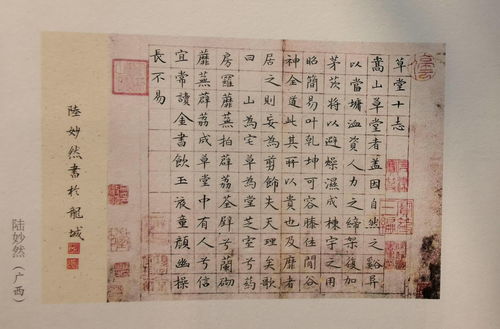 草堂十志
嵩山草堂者蓋因自然之谿阜
以當墉洫資人力之締架復加
茅茨將以避燥濕成棟宇之用
昭簡易叶乾坤可容膝佳間谷
神金道此其所以貴也及靡者
居之則妄為剪飾失天理矣歌
曰 山為宅草為堂芝室兮葯
房羅蘼蕪拍薜荔荃壁兮蘭砌
蘼蕪薜荔成草堂中有人兮信
宜常讀金書飲玉液童顏幽操
長不易
陸妙然書於龍城
陆妙然（广西）